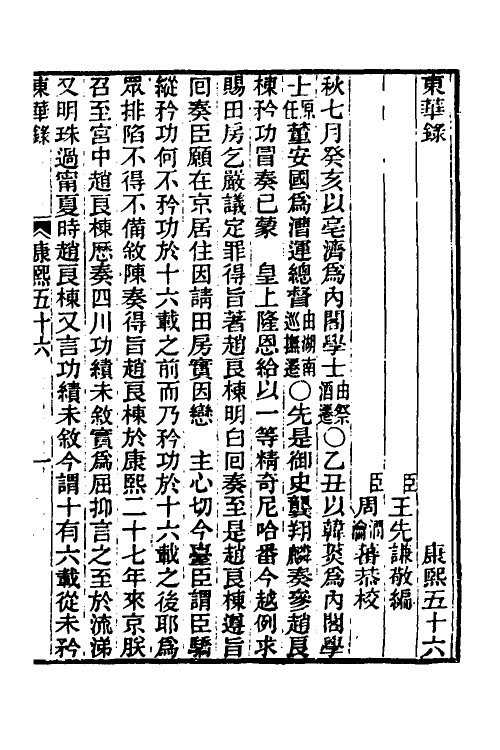 東華錄 康熙五十六
臣王先謙敬編
臣周潤蕃 周瀹蕃恭校
秋七月癸亥以亳濟爲內閣學士由祭酒遷○乙丑以韓菼爲內閣學
士原任董安國爲漕運總督由湖南巡撫遷○先是御史龔翔麟奏參趙良
棟矜功冒奏已蒙 皇上隆恩給以一等精奇尼哈番今越例求
賜田房乞嚴議定罪得旨著趙良棟明白回奏至是趙良棟遵旨
回奏臣願在京居住因請田房實因戀 主心切今臺臣謂臣驕
縱矜功何不矜功於十六載之前而乃矜功於十六載之後耶爲
眾排陷不得不備敘陳奏得旨趙良棟於康熙二十七年來京朕
召至宮中趙良棟歷奏四川功績未敘實爲屈抑言之至於流涕
又明珠過甯夏時趙良棟又言功績未敘今謂十有六載從未矜
東華錄 康熙五十六 一